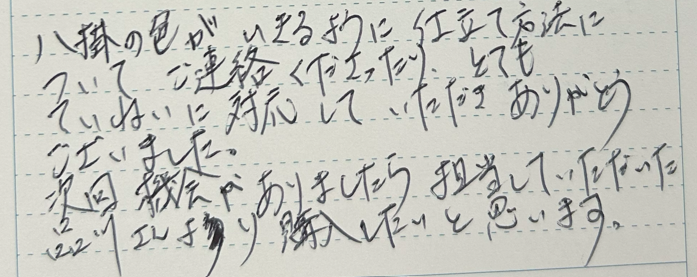 八掛の色が いきるように 仕立て方法に
ついて ご連絡くださったり、とても
ていねいに 対応して いただき ありがとう
ございました。
次回 機会が ありましたら 担当していただいた
より 購入したいと 思います。